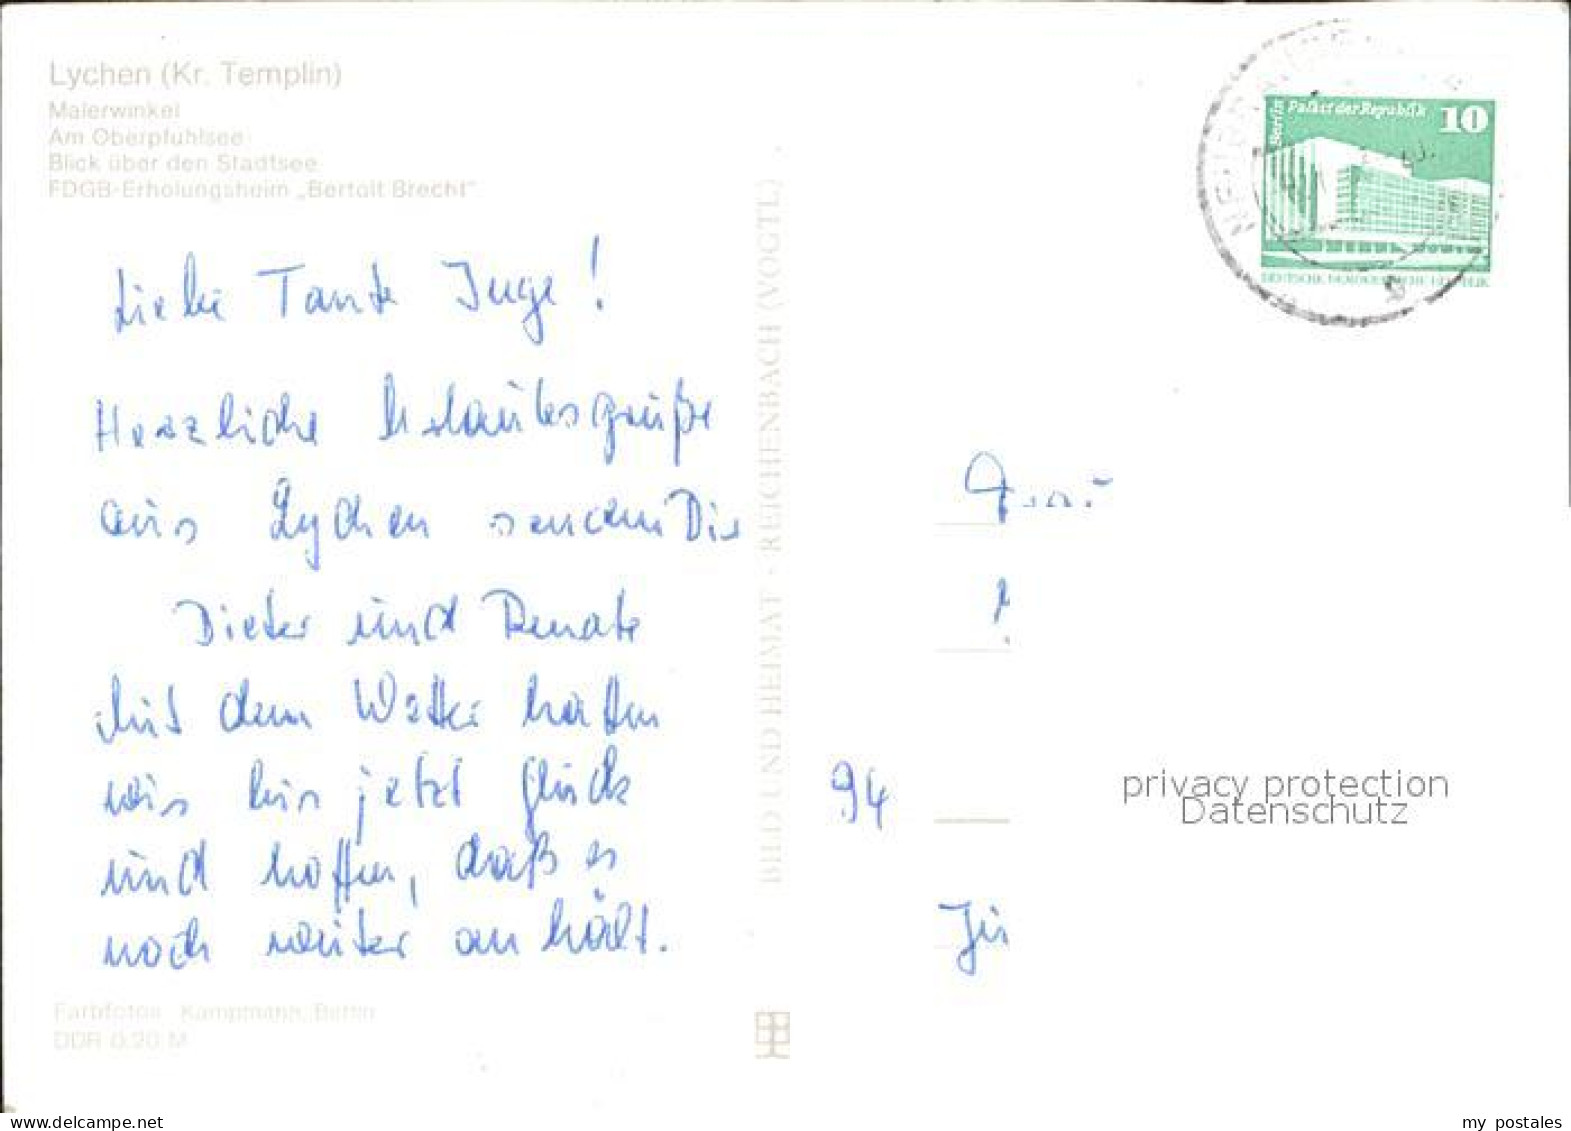 Lychen (Kr. Templin)
Malerwinkel
Am Oberpfuhlsee
Blick über den Stadtsee
FDGB-Erholungsheim „Bertolt Brecht"
Liebe Tante Inge!
Herzliche Urlaubsgrüße
aus Lychen senden Dir
Dieter und Renate
Mit dem Wetter hatten
wir bis jetzt Glück
und hoffen, daß es
noch weiter anhält.
Farbfotos: Kampmann, Berlin
DDR 0,20 M
BILD UND HEIMAT · REICHENBACH (VOGTL)
Berlin Palast der Republik 10
DEUTSCHE DEMOKRATISCHE REPUBLIK
Frau
94
privacy protection
Datenschutz
my postales